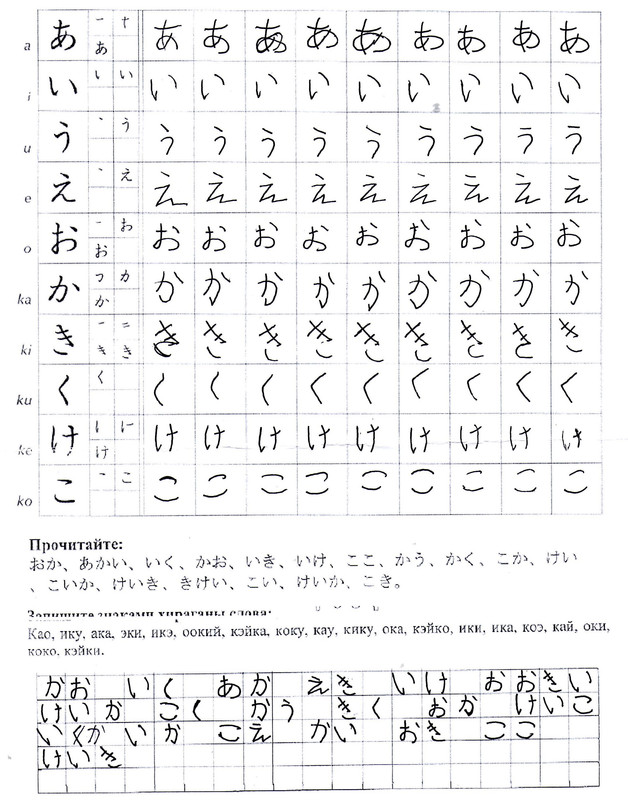 a あ あ あ あ あ あ あ あ あ あ あ
i い い い い い い い い い い い
u う う う う う う う う う う う
e え え え え え え え え え え え
o お お お お お お お お お お お
ka か か か か か か か か か か か
ki き き き き き き き き き き き
ku く く く く く く く く く く く
ke け け け け け け け け け け け
ko こ こ こ こ こ こ こ こ こ こ こ
Прочитайте:
おか、あかい、いく、かお、いき、いけ、ここ、かう、かく、こか、けい
、こいか、けいき、きけい、こい、けいか、こき。
Запишите знаками хираганы слова:
Као, ику, ака, эки, икэ, оокий, кэйка, коку, кау, кику, ока, кэйко, ики, ика, коэ, кай, оки,
коко, кэйки.
かお いく あか えき いけ おおきい
けいか こく かう きく おか けいこ
いくか いか こえ かい おき ここ
けいき